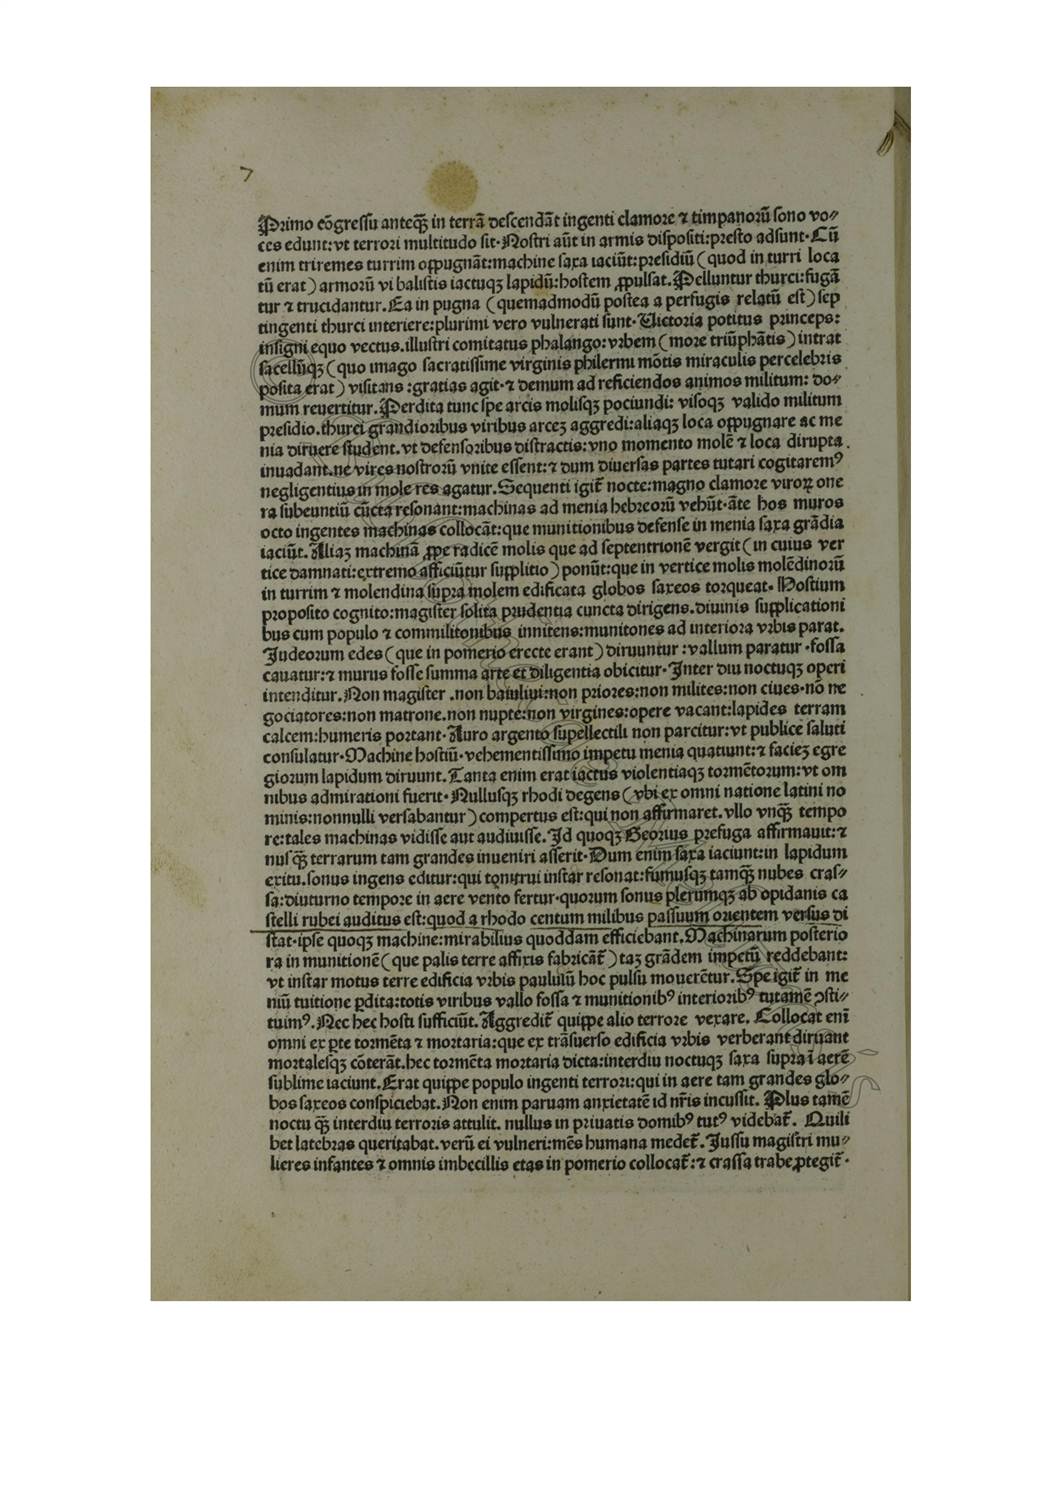 7
Primo cõgressu anteqȝ̃ in terrã descendãt ingenti clamore ⁊ timpanorũ sono vo⸗
ces edunt:vt terrori multitudo sit·Nostri aũt in armis dispositi:presto adsunt·Cũ
enim triremes turrim oppugnãt:machine saxa iaciũt:presidiũ(quod in turri loca
tũ erat)armorũ vi balistis iactuqȝ lapidũ:hostem ꝓpulsat.Pelluntur thurci:fugã
tur ⁊ trucidantur.Ea in pugna (quemadmodũ postea a perfugis relatũ est)sep
tingenti thurci interiere:plurimi vero vulnerati sunt·Victoria potitus princeps:
insigni equo vectus.illustri comitatus phalango:vrbem(more triũphãtis)intrat
sacellũqȝ(quo imago sacratissime virginis philermi mõtis miraculis percelebris
posita erat) visitans :gratias agit·⁊ demum ad reficiendos animos militum: do⸗
mum reuertitur.Perdita tunc spe arcis molisqȝ pociundi: visoqȝ valido militum
presidio.thurci grandioribus viribus arceȝ aggredi:aliaqȝ loca oppugnare ac me
nia diruere student.vt defensoribus distractis:vno momento molẽ ⁊ loca dirupta
inuadant.ne vires nostrorũ vnite essent:⁊ dum diuersas partes tutari cogitaremꝰ
negligentius in mole res agatur.Sequenti igit̃ nocte:magno clamore viroꝝ one
ra subeuntiũ cũcta resonant:machinas ad menia hebreorũ vehũt·ãte hos muros
octo ingentes machinas collocãt:que munitionibus defense in menia saxa grãdia
iaciũt.Aliaȝ machinã ꝓpe radicẽ molis que ad septentrionẽ vergit(in cuius ver
tice damnati:extremo afficiũtur supplitio)ponũt:que in vertice molis molẽdinorũ
in turrim ⁊ molendina supra molem edificata globos saxeos torqueat·Hostium
proposito cognito:magister solita prudentia cuncta dirigens.diuinis supplicationi
bus cum populo ⁊ commilitonibus innitens:munitones ad interiora vrbis parat.
Judeorum edes(que in pomerio erecte erant)diruuntur :vallum paratur ·fossa
cauatur:⁊ murus fosse summa arte et diligentia obicitur·Inter diu noctuqȝ operi
intenditur.Non magister .non baiuliui:non priores:non milites:non ciues·nõ ne
gociatores:non matrone.non nupte:non virgines:opere vacant:lapides terram
calcem:humeris portant·Auro argento supellectili non parcitur:vt publice saluti
consulatur·Machine hostiũ·vehementissimo impetu menia quatiunt:⁊ facieȝ egre
giorum lapidum diruunt.Tanta enim erat iactus violentiaqȝ tormẽtorum:vt om
nibus admirationi fuerit·Nullusqȝ rhodi degens(vbi ex omni natione latini no
minis:nonnulli versabantur)compertus est:qui non affirmaret.vllo vnqȝ̃ tempo
re:tales machinas vidisse aut audiuisse.Id quoqȝ Georius perfuga affirmauit:⁊
nusqȝ̃ terrarum tam grandes inueniri asserit·Dum enim saxa iaciunt:in lapidum
exitu.sonus ingens editur:qui tonitrui instar resonat:fumusqȝ tamqȝ̃ nubes cras⸗
sa:diuturno tempore in aere vento fertur·quorum sonus plerumqȝ ab opidanis ca
stelli rubei auditus est:quod a rhodo centum milibus passuum orientem versus di
stat·ipse quoqȝ machine:mirabilius quoddam efficiebant.Machinarum posterio
ra in munitionẽ(que palis terre affixis fabricãt̃)taȝ grãdem impetũ reddebant:
vt instar motus terre edificia vrbis paululũ hoc pulsu mouerẽtur.Spe igit̃ in me
niũ tuitione ꝑdita:totis viribus vallo fossa ⁊ munitionibꝰ interioribꝰ tutamẽ ꝯsti⸗
tuimꝰ.Nec hec hosti sufficiũt.Aggredit̃ quippe alio terrore vexare. Collocat enĩ
omni ex ꝑte tormẽta ⁊ mortaria:que ex trãsuerso edificia vrbis verberant diruant
mortalesqȝ cõterãt.hec tormẽta mortaria dicta:interdiu noctuqȝ saxa supra ĩ aerẽ
sublime iaciunt.Erat quippe populo ingenti terrori:qui in aere tam grandes glo⸗
bos saxeos conspiciebat.Non enim paruam anxietatẽ id nr̃is incussit. Plus tamẽ
noctu qȝ̃ interdiu terroris attulit. nullus in priuatis domibꝰ tutꝰ videbat̃. Quili
bet latebras queritabat.verũ ei vulneri:mẽs humana medet̃.Jussu magistri mu⸗
lieres infantes ⁊ omnis imbecillis etas in pomerio collocat̃:⁊ crassa trabe ꝓtegit̃·